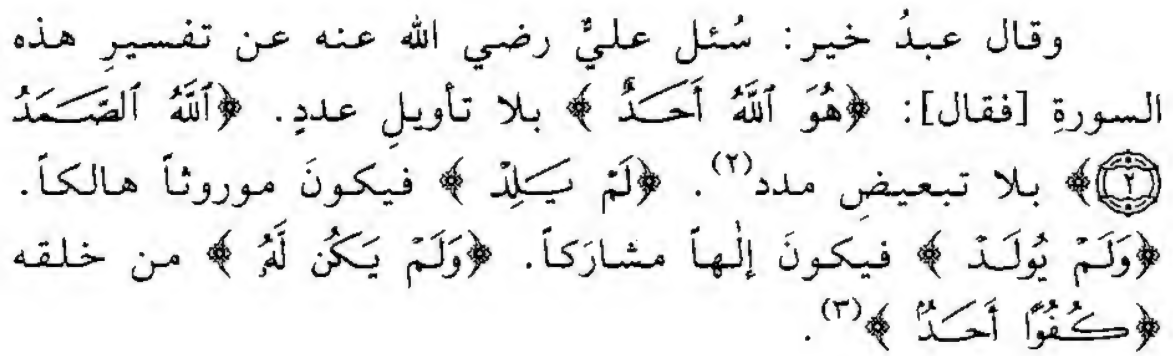 وقال عبدُ خير: سُئل عليٌّ رضي الله عنه عن تفسيرِ هذه
السورةِ [فقال]: ﴿هُوَ ٱللَّهُ أَحَدٌ ﴾ بلا تأويلِ عددٍ. ﴿ٱللَّهُ ٱلصَّمَدُ
٢﴾ بلا تبعيضِ مدد(٢). ﴿لَمْ يَلِدْ ﴾ فيكونَ موروثاً هالكاً.
﴿وَلَمْ يُولَدْ ﴾ فيكونَ إلٰهاً مشارَكاً. ﴿وَلَمْ يَكُن لَّهُۥ ﴾ من خلقه
﴿كُفُوًا أَحَدٌۢ ﴾(٣).